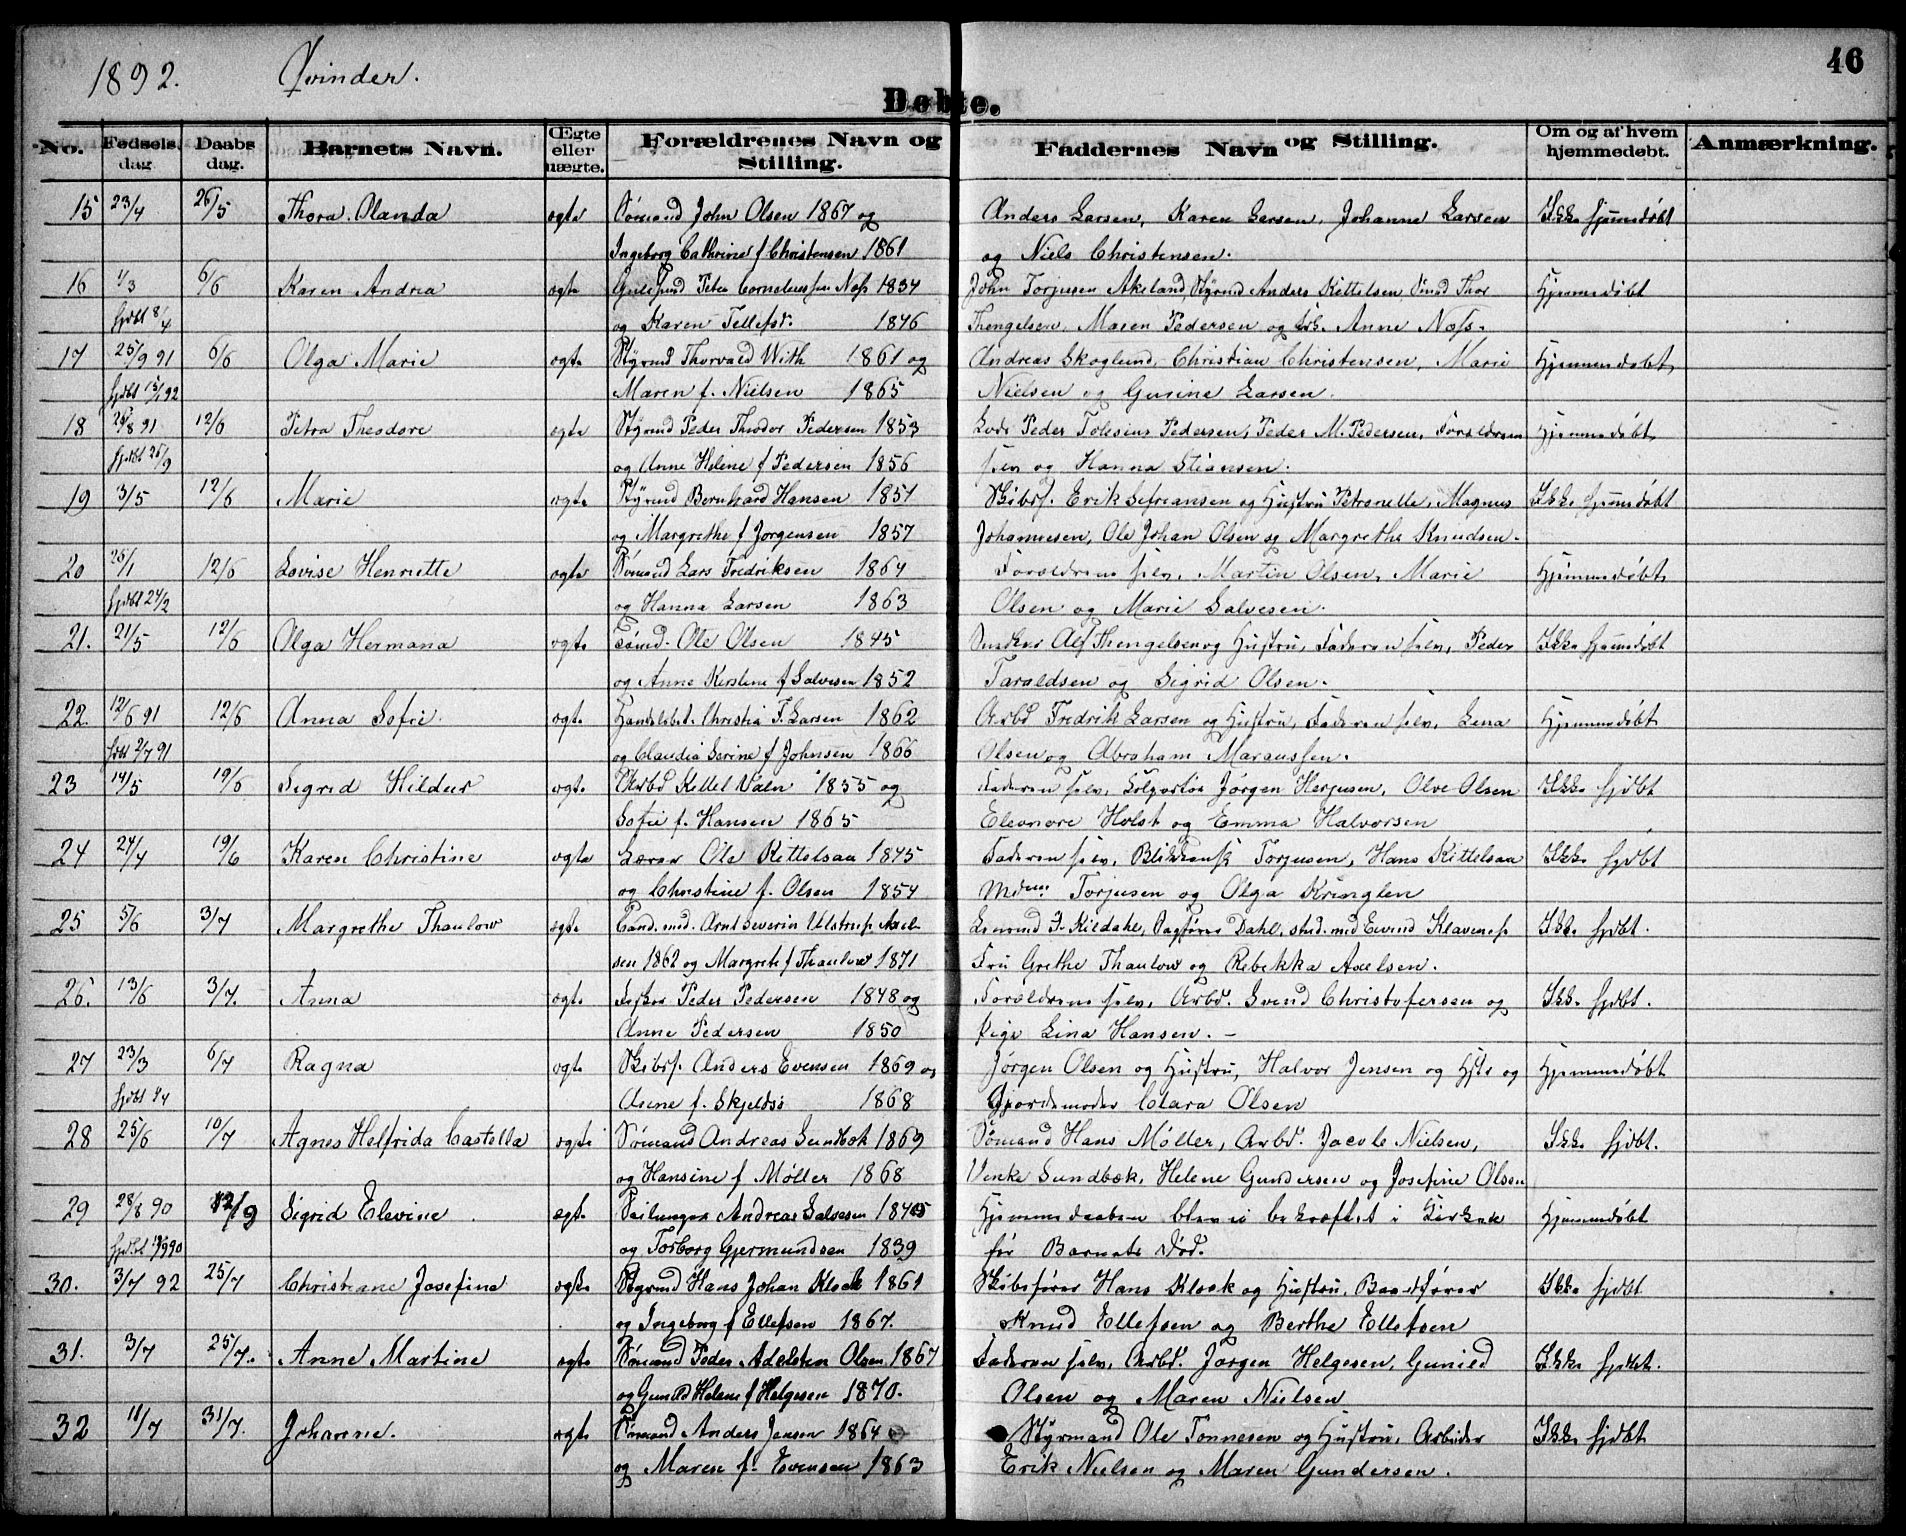 1892. Qvinder.
46
Døbte.
No. Fødselsdag. Daabsdag. Barnets Navn. Ægte eller uægte. Forældrenes Navn og Stilling. Faddernes Navn og Stilling. Om og af hvem hjemmedøbt. Anmærkning.
15 23/4 26/5 Thora Olanda ægte Sømand John Olsen 1867 og Anders Larsen, Karen Larsen, Johanne Larsen Ikke hjemmedøbt
Ingeborg Cathrine f Christensen 1861 og Niels Christensen.
16 1/3 6/6 Karen Andrea ægte Peter Corneliussen Næss 1834 John Torjusen Akeland, Styrmd Anders Kittelsen, Thor Hjemmedøbt
hjdbt 8/4 og Karen Tellefsd. 1846 Thengelsen, Maren Pedersen og Anne Næss.
17 25/9 91 6/6 Olga Marie ægte Styrmd Thorvald With 1861 og Andreas Skoglund, Christian Christensen, Marie Hjemmedøbt
hjdbt 15/1 92 Maren f. Nielsen 1865 Nielsen og Gurine Larsen.
18 26/8 91 12/6 Petra Theodore ægte Styrmd Peder Theodor Pedersen 1853 Lods Peder Tobias Pedersen, Peder M. Pedersen, Forældrene Hjemmedøbt
hjdbt 25/9 og Anne Helene f Pedersen 1856 selv og Hanna Stiansen.
19 3/5 12/6 Marie ægte Styrmd Bernhard Hansen 1851 Skibsf. Erik Sefreansen og Hustru Petronelle, Magnus Ikke hjemmedøbt
og Margrethe f Jørgensen 1857 Johannesen, Ole Johan Olsen og Margrethe Knudsen.
20 25/1 12/6 Lovise Henriette ægte Sømand Lars Fredriksen 1864 Forældrene selv, Martin Olsen, Marie Hjemmedøbt
hjdbt 24/2 og Hanna Larsen 1863 Olsen og Marie Salvesen.
21. 21/5 12/6 Olga Hermana ægte Tømd. Ole Olsen 1845 Snedker Alf Thengelsen og Hustru, Faderen selv, Peder Ikke hjemmedøbt
og Anne Kirstine f Salvesen 1852 Taraldsen og Sigrid Olsen.
22. 12/6 91 12/6 Anna Sofie. ægte Handelsbet. Christia F. Larsen 1862 Arbd Fredrik Larsen og Hustru, Faderen selv, Lena Hjemmedøbt
hjdbt 2/7 91 og Claudia Serine f Johnsen 1866 Olsen og Abraham Marcussen.
23 14/5 19/6 Sigrid Hildur ægte Arbd Kittel Valn 1855 og Faderen selv, Kolportør Jørgen Herjusen, Olve Olsen Ikke hjdbt
Sofie f. Hansen 1865 Eleonore Holst og Emma Halvorsen
24 24/4 19/6 Karen Christine ægte Lærer Ole Kittelsaa 1845 Faderen selv, Torjusen, Hans Kittelsaa Ikke hjdbt
og Christine f. Olsen 1854 Mdme Torjusen og Olga Kringlen
25 5/6 3/7 Margrethe Thaulow ægte Cand. med. Arnt Severin Ulstrup Axel- Kildahl, Sagfører Dahl, stud. med Eivind Klaveness Ikke hjdbt.
sen 1862 og Margrete f Thaulow 1871 Fru Grethe Thaulow og Rebekka Axelsen.
26. 13/6 3/7. Anna ægte Fisker Peder Pedersen 1848 og Forældrene selv, Arbd. Svend Christofersen og Ikke hjdbt.
Anne Pedersen 1850 Pige Lina Hansen. -
27 23/3 6/7 Ragna ægte Skibsf. Anders Evensen 1869 og Jørgen Olsen og Hustru, Halvor Jensen og Hstr og Hjemmedøbt
hjdbt 4/4 Asine f. Skjeldsø 1868 Gjordemoder Clara Olsen
28 25/6 10/7 Agnes Helfrida Castella ægte Sømand Andreas Sundbøk 1869 Sømand Hans Møller, Arbd. Jacob Nielsen, Ikke hjdbt.
og Hansine f Møller 1868 Venke Sundbæk, Helene Gundersen og Josefine Olsen
29 28/8 90 12/9 Sigrid Elevine ægt. Seilmager Andreas Salvesen 1845 Hjemmedaaben blev ei bekræftet i Kirken Hjemmedøbt
hjdbt 19/9 90 og Torborg Gjermundsen 1839 før Barnets Død.
30. 3/7 92 25/7 Christiane Josefine ægte Styrmd Hans Johan Klock 1861 Skibsfører Hans Klock og Hustru, Baadfører Ikke hjdbt
og Ingeborg f Ellefsen 1867. Knud Ellefsen og Berthe Ellefsen
31. 3/7 25/7. Anne Martine ægte Sømand Peder Adelsten Olsen 1867 Faderen selv, Arbd. Jørgen Helgesen, Gunild Ikke hjdbt.
og Gunild Helene f Helgesen 1870. Olsen og Maren Nielsen
32 11/7 31/7. Johanne. ægte Sømand Anders Jensen 1864 Styrmand Ole Tønnesen og Hustru, Arbeider Ikke hjdbt
og Maren f. Evensen 1863 Erik Nielsen og Maren Gundersen.